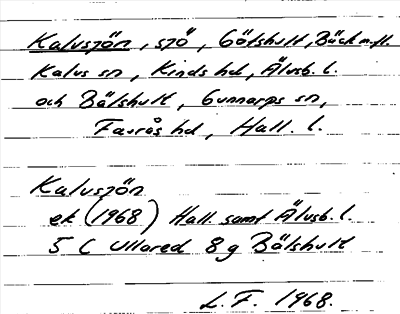 Kalvsjön, sjö, Götshult, Bäck m.fl.
Kalvs sn, Kinds hd, Älvsb. l.
och Bälshult, Gunnarps sn,
Faurås hd, Hall. l.
Kalvsjön
ek (1968) Hall. samt Älvsb. l.
5 C Ullared 8 g Bälshult
L.F. 1968.